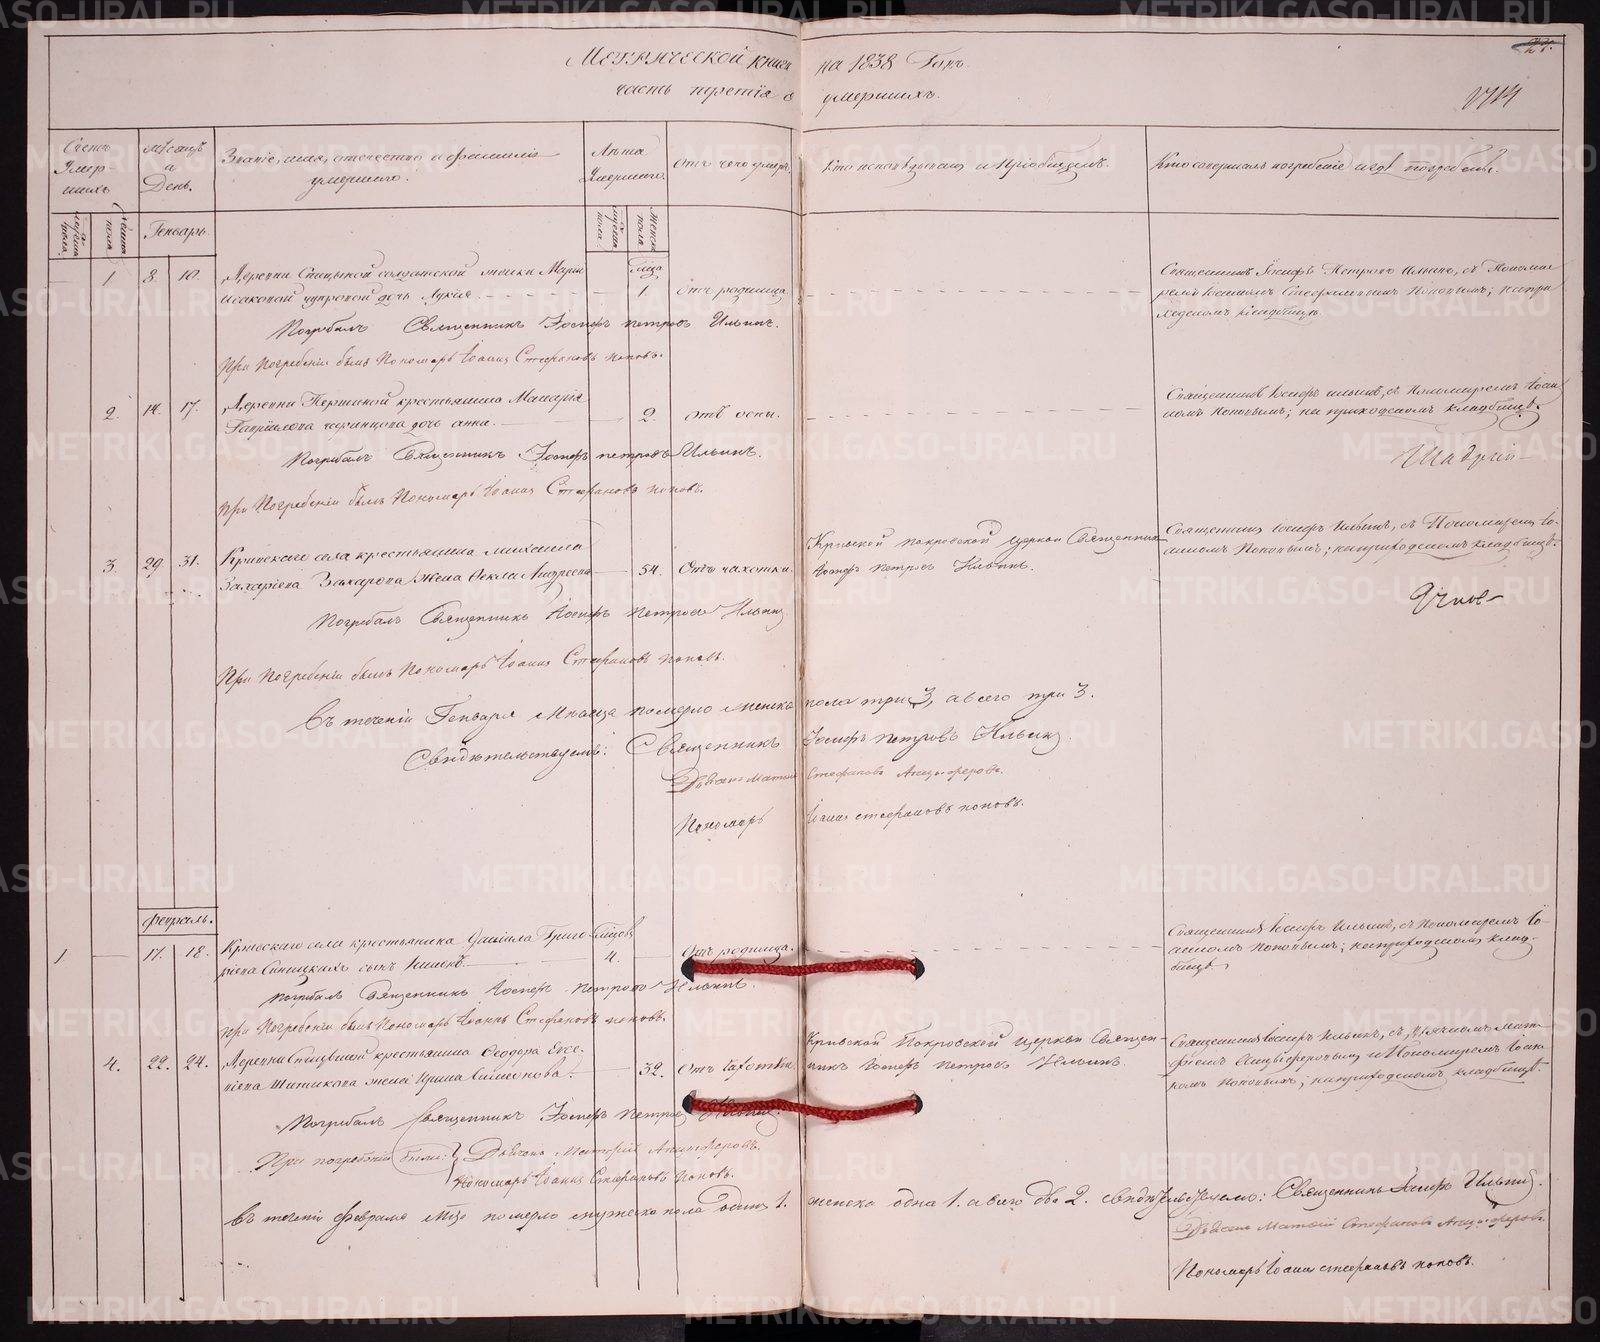 Метрической книги на 1838 Годъ.
часть третія о умершихъ.
1714
Счетъ Умершихъ
Мѣсяцъ и День.
Званіе, имя, отечество и фамилія умершаго.
Лѣта Умершаго.
Отъ чего умеръ.
Кто исповѣдывалъ и Пріобщалъ.
Кто совершалъ погребеніе и гдѣ погребены?
мужеска пола.
женска пола.
Генварь.
мужеска пола.
Женска пола
1 8. 10. Деревни солдатской жонки Маріи
дочь Лукія. Мѣсяца 1. Отъ родимца
Священникъ Іосифъ Петровъ Ильинъ, съ Пономаремъ Іоанномъ Стефановымъ Поповымъ; на приходскомъ кладбищѣ.
Погребалъ Священникъ Іосифъ Петровъ Ильинъ.
При Погребеніи былъ Пономарь Іоаннъ Стефановъ Поповъ.
2. 14. 17. Деревни Першиной крестьянина Макарія
Гаврилова дочь Анна. 2. отъ оспы.
Священникъ Іосифъ Ильинъ, съ Пономаремъ Іоанномъ Поповымъ; на приходскомъ кладбищѣ.
Погребалъ Священникъ Іосифъ Петровъ Ильинъ.
При Погребеніи былъ Пономарь Іоаннъ Стефановъ Поповъ.
3. 29. 31. Кривскаго села крестьянина Михаила
Захаріева Захарова жена Ѳекла Андреева 54. Отъ чахотки.
Кривской покровской церкви Священникъ
Іосифъ Петровъ Ильинъ.
Священникъ Іосифъ Ильинъ, съ Пономаремъ Іоанномъ Поповымъ; на приходскомъ кладбищѣ.
Погребалъ Священникъ Іосифъ Петровъ Ильинъ
При Погребеніи былъ Пономарь Іоаннъ Стефановъ Поповъ.
Въ теченіи Генваря мѣсяца померло женска пола три 3, а всего три 3.
Свидѣтельствуемъ: Священникъ Іосифъ Петровъ Ильинъ.
Стефановъ Анциферовъ.
Пономарь Іоаннъ Стефановъ Поповъ.
Февраль.
1 17. 18. Кривскаго села крестьянина Даніила Григоріева
Синицкихъ сынъ мѣсяцовъ 4. Отъ родимца.
Священникъ Іосифъ Ильинъ, съ Пономаремъ Іоанномъ Поповымъ; на приходскомъ кладбищѣ.
Погребалъ Священникъ Іосифъ Петровъ Ильинъ.
При Погребеніи былъ Пономарь Іоаннъ Стефановъ Поповъ.
4. 22. 24. Деревни крестьянина Ѳеодора
жена Ирина Симеонова. 32. Отъ чахотки
Кривской Покровской церкви Священникъ Іосифъ Петровъ Ильинъ.
Священникъ Іосифъ Ильинъ, съ Дьячкомъ Матѳіемъ Анциферовымъ и Пономаремъ Іоанномъ Поповымъ; на приходскомъ кладбищѣ.
Погребалъ Священникъ Іосифъ Петровъ Ильинъ.
При погребеніи были: Дьячекъ Матѳій Анциферовъ.
Пономарь Іоаннъ Стефановъ Поповъ.
Въ теченіи февраля мѣсяца померло мужеска пола одинъ 1. женска одна 1. а всего два 2. свидѣтельствуемъ: Священникъ Іосифъ Ильинъ.
Дьячекъ Матѳій Стефановъ Анциферовъ.
Пономарь Іоаннъ Стефановъ Поповъ.
METRIKI.GASO-URAL.RU